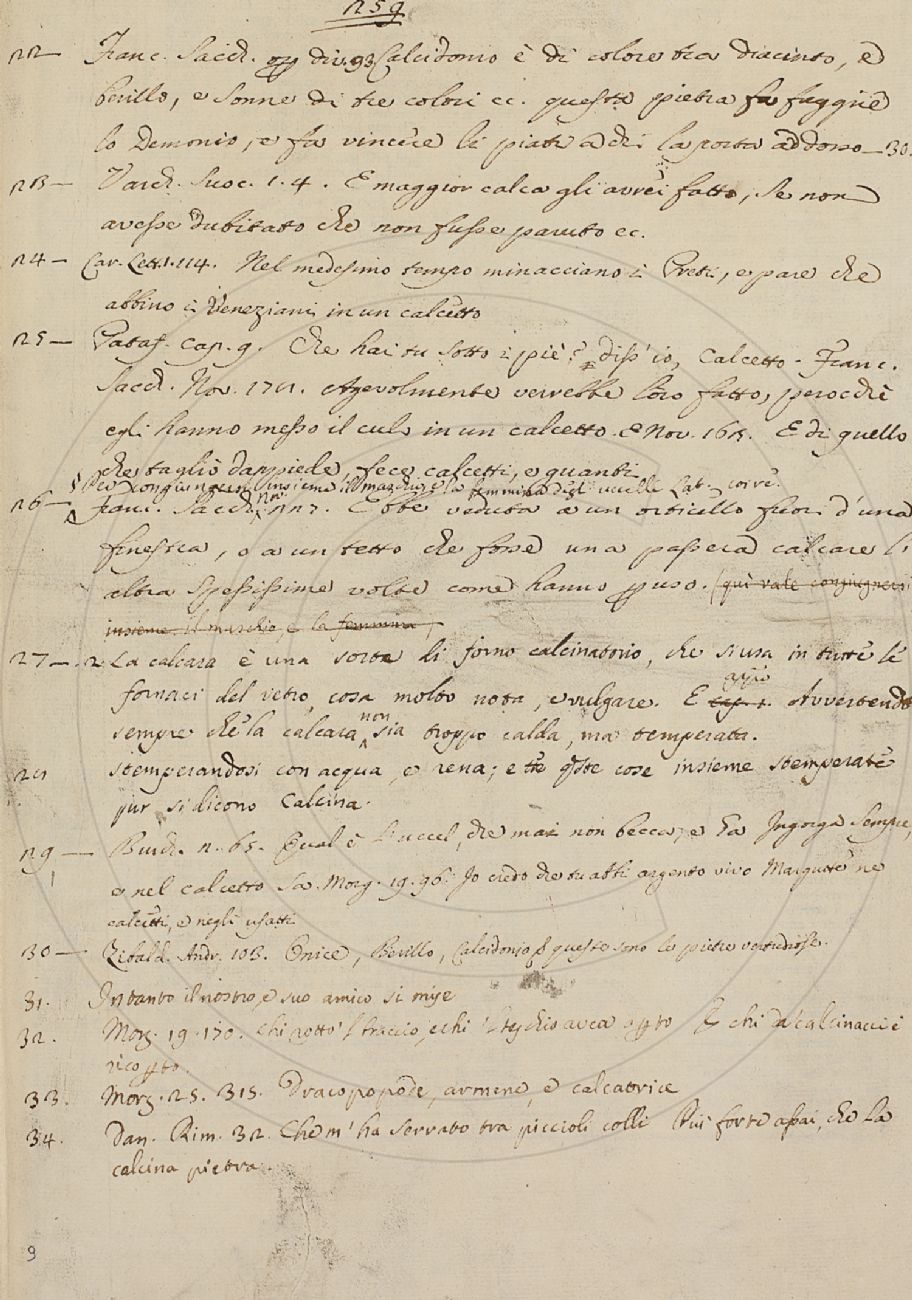 259
22 — Franc. Sacch. op div. 93 Calcidonio è di colore tra diacinto, e
berillo, e sonne di tre colori ec. questa pietra fa fuggire
lo Demonio, e fa vincere le piate a chi la porta addosso — 30.
23 — Varch. Suoc. 1. 4. E maggior calca gli avrei fatto, se non
avesse dubitato che non fusse paruto ec.
24 — Car. Lett. 1. 114. Nel medesimo tempo minacciano i Preti, e pare che
abbino i Veneziani in un calcetto
25 — Pataf. Cap. 9. Che hai tu sotto i piè? diss' io, Calcetto - Franc.
Sacch. Nov. Agevolmente verrebbe loro fatto, perocchè
egli hanno messo il culo in un calcetto. E Nov. E di quello
che tagliò dappiede, fece calcetti, e guanti
Per congiungersi insieme il maschio, e la femmina degl' uccelli Lat. coire.
26 — Franc. Sacch. nov. Ebbe veduta a un orticello fuori d'una
finestra, o a un tetto che fosse una passera calcare l'
altra spessissime volte come hanno p uso. (qui vale congiugnersi
insieme il maschio, e la femmina,
27 — . 2 La calcara è una sorta di forno calcinatorio, che si usa in tutte le
fornaci del vetro, cosa molto nota, e vulgare. E appiè Avvertendo
sempre che la calcara non sia troppo calda, ma temperata.
stemperandosi con acqua, e rena; e tre qste cose insieme stemperate
pur si dicono Calcina.
29 — Burch. n. 65. Qual è l'uccel, che mai non becca, e ha Ingorga sempre,
e nel calcetto sa. Morg. 19. 96. Io credo che tu abbi argento vivo Margutte ne
calcetti, e negli usatti
30 — Zibald. Andr. 103. Onice, Berillo, Calcidonio, queste sono le pietre vertudiose.
31. Intanto il nostro, e suo amico si mise
32. Morg. 19. 170. Chi rotto 'l braccio, e chi 'l teschio avea apto E chi da' calcinacci è
ricopto.
33. Morg. 25. 315. Dracopopode, armene, e calcatrice
34. Dan. Rim. 32. Che m' ha serrato tra piccioli colli Più forte assai, che la
calcina pietra.
9